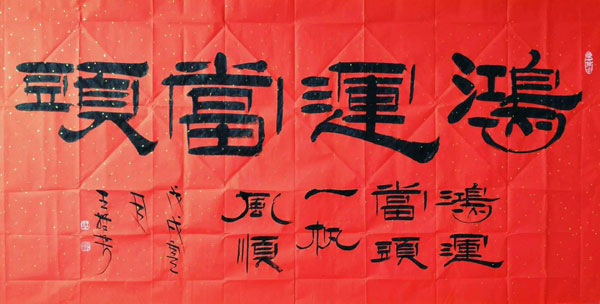 鴻運當頭
鴻運
當頭
一帆
風順